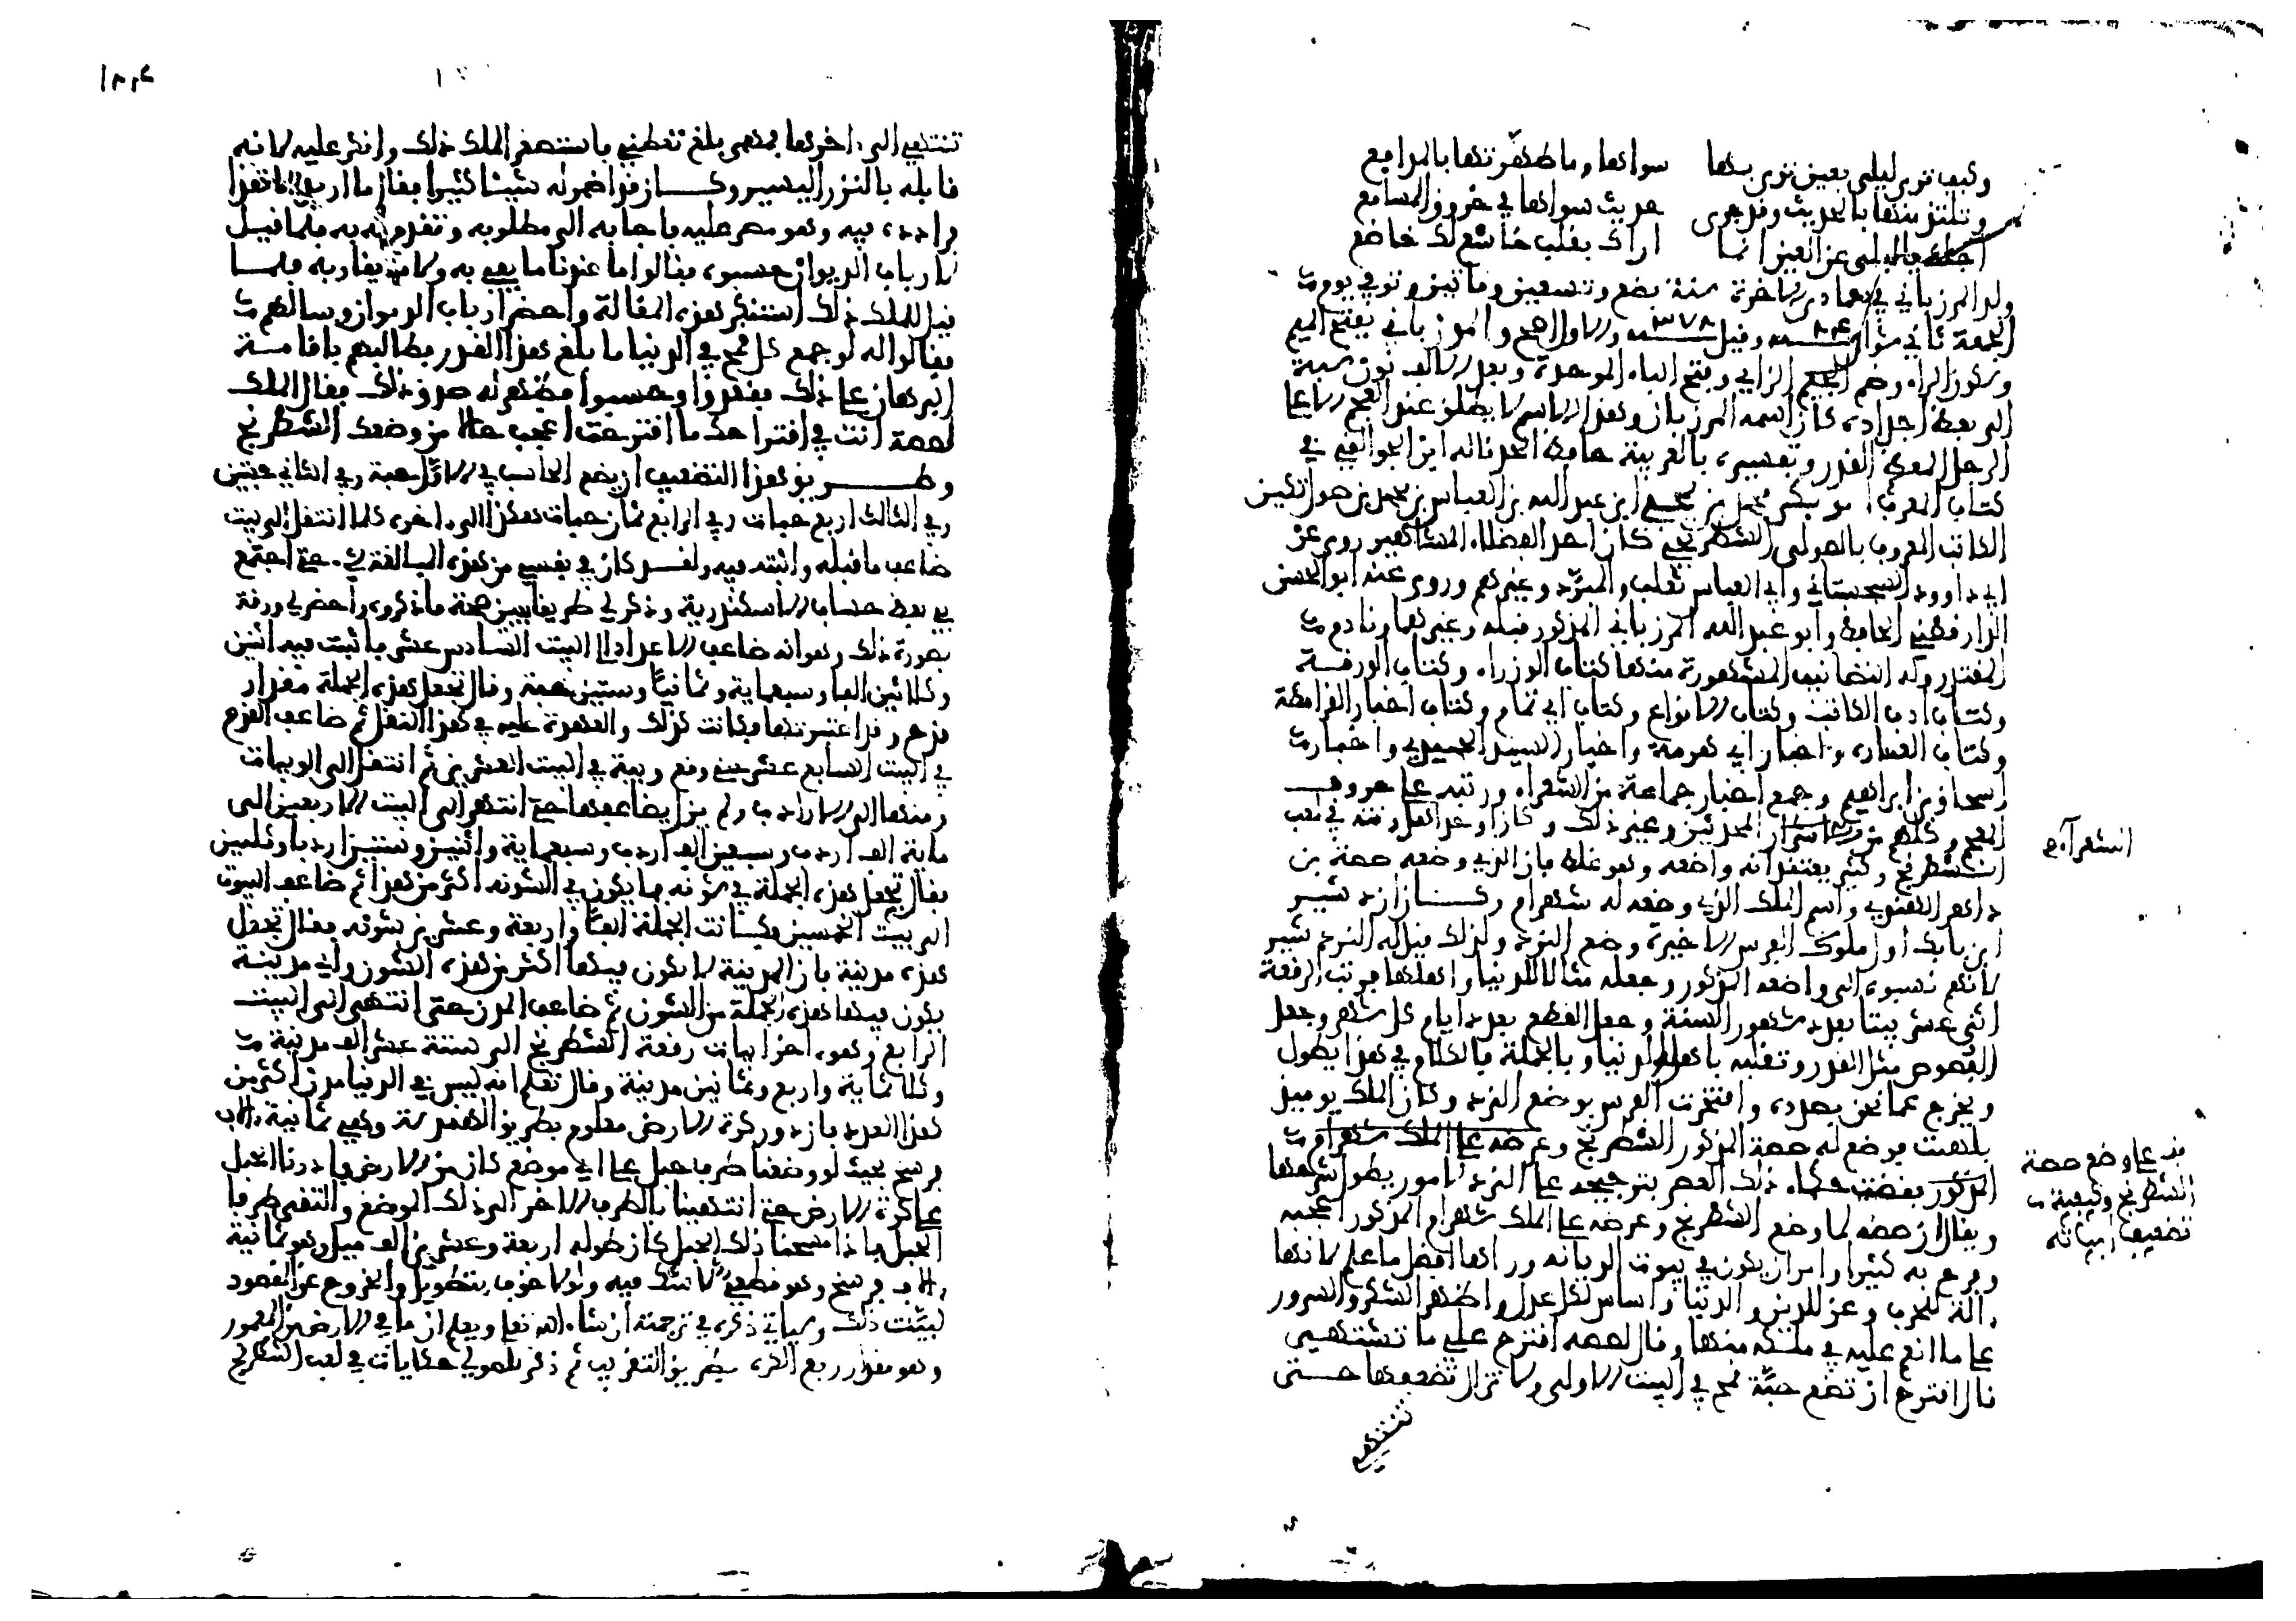 وكيف ترى ليلى بعين ترى بها سواها وما طهرتها بالمدامع
وتلتذ منها بالحديث وقد جرى حديث سواها في خروق المسامع
اجلك يا ليلى عن العين انما اراك بقلب خاشع لك خاضع
ولد المرزباني في جمادى الاخرة سنة بضع وتسعين ومايتين وتوفي يوم
الجمعة ثاني شوال سنة ٣٨٤ وقيل سنة ٣٧٨ والاول اصح والمرزباني بفتح الميم
وسكون الراء وضم الزاي وفتح الباء الموحدة وبعد الالف نون نسبة
الى بعض اجداده كان اسمه المرزبان وهذا الاسم لا يطلق عند العجم الا على
الرجل المعظم القدر وتفسيره بالعربية حافظ الحد قاله ابن الجواليقي في
كتاب المعرب ابو بكر محمد بن يحيى ابن عبد الله بن العباس بن محمد بن صول تكين
الكاتب المعروف بالصولي الشطرنجي كان احد الفضلاء المشاهير روى عن
ابي داوود السجستاني وابي العباس ثعلب والمبرّد وغيرهم وروى عنه ابو الحسن
الدارقطني الحافظ وابو عبد الله المرزباني المذكور قبله وغيرهما ونادم
المقتدر وله التصانيف المشهورة منها كتاب الوزراء وكتاب الورقة
وكتاب ادب الكاتب وكتاب الانواع وكتاب ابي تمام وكتاب اخبار القرامطة
وكتاب الغرر واخبار ابي هرمة واخبار السيد الحميري واخبار
اسحاق بن ابراهيم وجمع اخبار جماعة من الشعراء ورتبه على حروف
المعجم وكلهم من المحدثين وغير ذلك وكان اوحد اهل وقته في لعب
الشطرنج وكثير يعتقد انه واضعه وهو غلط فان الذي وضعه صصة بن
داهر الهندي واسم الملك الذي وضعه له شهرام وكان ازدشير
ابن بابك اول ملوك الفرس الاخيرة وضع النرد ولذلك قيل له النردشير
لانهم نسبوه الى واضعه المذكور وجعله مثالا للدنيا واهلها فرتب الرقعة
اثني عشر بيتا بعدد شهور السنة وجعل القطع بعدد ايام كل شهر وجعل
الفصوص مثل القدر وتقلبه باهل الدنيا وبالجملة فالكلام في هذا يطول
ويخرج عما نحن بصدده وافتخرت الفرس بوضع النرد وكان الملك يوميذ
بلهيت فوضع له صصة المذكور الشطرنج وعرضه على الملك شهرام
المذكور فقضت حكماء ذلك العصر بترجيحه على النرد لامور يطول شرحها
ويقال ان صصه لما وضع الشطرنج وعرضه على الملك شهرام المذكور اعجبه
وفرح به كثيرا وامر ان يكون في بيوت الديانه ورءاها افضل ما علم لانها
ءالة للحرب وعز للدين والدنيا واساس لكل عدل واظهر الشكر والسرور
على ما انعم عليه في ملكه منها وقال لصصه اقترح علي ما تشتهي
قال اقترح ان تضع حبّة قمح في البيت الاولى ولا تزال تضعفها حتى
تنتهي
الشعرآء
قف على وضع صصة
الشطرنج وكيفية
تضعيف ابياته
تنتهي الى ءاخرها فمهما بلغ تعطني فاستصغر الملك ذلك وانكر عليه لانه
قابله بالنزر اليسير وكان قد اضمر له شيئا كثيرا فقال ما اريد الا هذا
فرادده فيه وهو مصر عليه فاجابه الى مطلوبه وتقدم له به فلما قيل
لارباب الديوان حسبوه فقالوا ما عندنا ما يفي به ولا ما يقاربه فلما
قيل للملك ذلك استنكر هذه المقالة واحضر ارباب الديوان وسالهم
فقالوا له لو جمع كل قمح في الدنيا ما بلغ هذا القدر فطالبهم باقامة
البرهان على ذلك فقعدوا وحسبوا فظهر له صدق ذلك فقال الملك
لصصة انت في اقتراحك ما اقترحت اعجب حالا من وضعك الشطرنج
وطريق هذا التضعيف ان يضع الحاسب في الاوّل حبة وفي الثاني حبتين
وفي الثالث اربع حبات وفي الرابع ثمان حبات هكذا الى ءاخره كلما انتقل الى بيت
ضاعف ما قبله واثبته فيه ولقد كان في نفسي من هذه المبالغة شيء حتى اجتمع
بي بعض حساب الاسكندرية وذكر لي طريقا يبين صحة ما ذكروه واحضر لي ورقة
بصورة ذلك وهو انه ضاعف الاعداد الى البيت السادس عشر فاثبت فيه اثنين
وثلاثين الفا وسبعماية وثمانيا وستين حبة وقال نجعل هذه الجملة مقدار
قدح وقد اعتبرتها فكانت كذلك والعهدة عليه في هذا النقل ثم ضاعف القدح
في البيت السابع عشر حتى رفع ويبة في البيت العشرين ثم انتقل الى الويبات
ومنها الى الارادب ولم يزل يضاعفها حتى انتهى الى البيت الاربعين الى
ماية الف اردب وسبعين الف اردب وسبعماية واثنين وستين اردبا وثلثين
فقال نجعل هذه الجملة في شونه فما يكون في الشونه اكثر من هذا ثم ضاعف البيوت
الى بيت الخمسين فكانت الجملة الفا واربعة وعشرين شونه فقال نجعل
هذه مدينة فان المدينة لا يكون فيها اكثر من هذه الشون واي مدينة
يكون فيها هذه الجملة من الشون ثم ضاعف المدن حتى انتهى الى البيت
الرابع وهو ءاخر ابيات رقعة الشطرنج الى ستة عشر الف مدينة
وثلاثماية واربع وثمانين مدينة وقال تعلم انه ليس في الدنيا مدن اكثر من
هذا العدد فان دور كرة الارض معلوم بطريق الهندسة وهي ثمانية ءالاف
فرسخ بحيث لو وضعنا طرف حبل على اي موضع كان من الارض وادرنا الحبل
على كرة الارض حتى انتهينا بالطرف الاخر الى ذلك الموضع والتقى طرفا
الحبل فاذا مسحنا ذلك الحبل كان طوله اربعة وعشرين الف ميل وهو ثمانية
ءالاف فرسخ وهو قطعي لا شك فيه ولولا خوف التطويل والخروج عن المقصود
لبيّنت ذلك وسياتي ذكره في ترجمته ان شاء الله تعلى ويعلم ان ما في الارض من المعمور
وهو مقدار ربع الكرة بطريق التقريب ثم ذكر للصولي حكايات في لعب الشطرنج